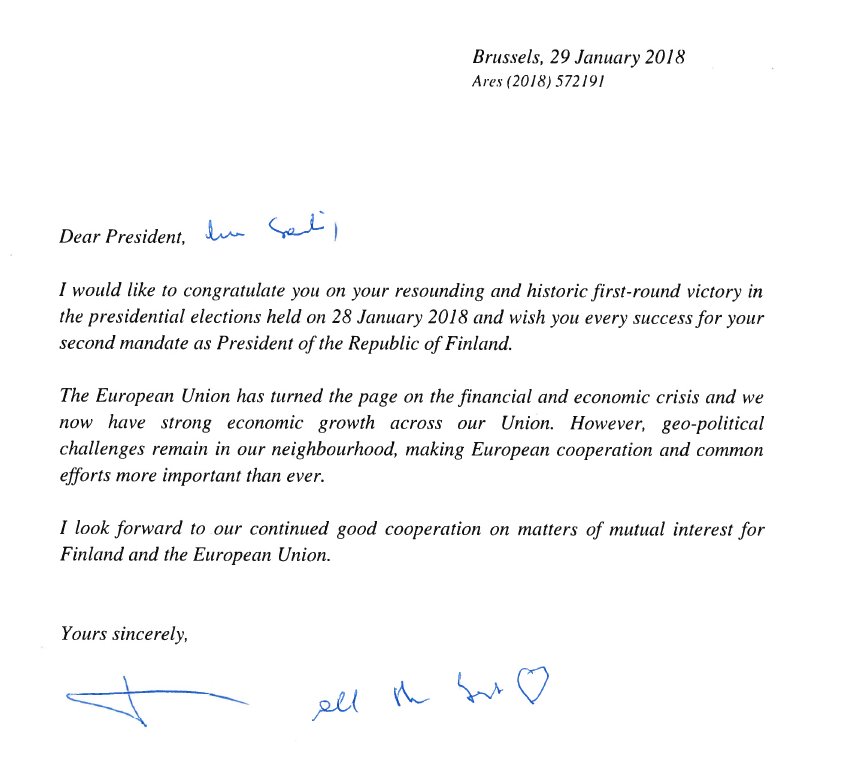 Brussels, 29 January 2018
Ares (2018) 572191
Dear President,
I would like to congratulate you on your resounding and historic first-round victory in
the presidential elections held on 28 January 2018 and wish you every success for your
second mandate as President of the Republic of Finland.
The European Union has turned the page on the financial and economic crisis and we
now have strong economic growth across our Union. However, geo-political
challenges remain in our neighbourhood, making European cooperation and common
efforts more important than ever.
I look forward to our continued good cooperation on matters of mutual interest for
Finland and the European Union.
Yours sincerely,
all the best